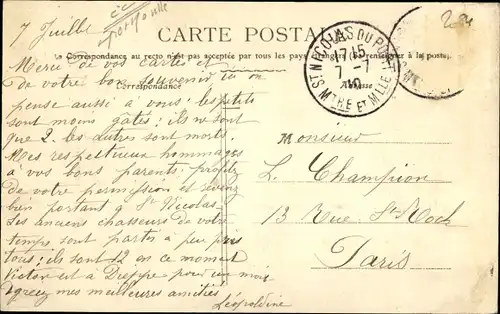 7 Juillet
CARTE POSTALE
La Correspondance au recto n'est pas acceptée par tous les pays étrangers (Se renseigner à la poste)
Merci de vos cartes et
de votre bon souvenir ici on
Correspondance
Adresse
pense aussi à vous : les petits
sont moins gatés : ils ne sont
que 2. les autres sont morts.
Mes respectueux hommages
à vos bons parents. profitez
de votre permission et revenez
bien portant à St Nicolas
Les anciens chasseurs de votre
temps sont partis à peu près
tous ; ils sont 12 en ce moment
Victor est à Dieppe pour un mois
Agréez mes meilleures amitiés
Léopoldine
Monsieur
L. Champion
13 Rue St Roch
Paris
ST NICOLAS DU PORT
17 45
7 - 7
10
MTHE ET MLLE